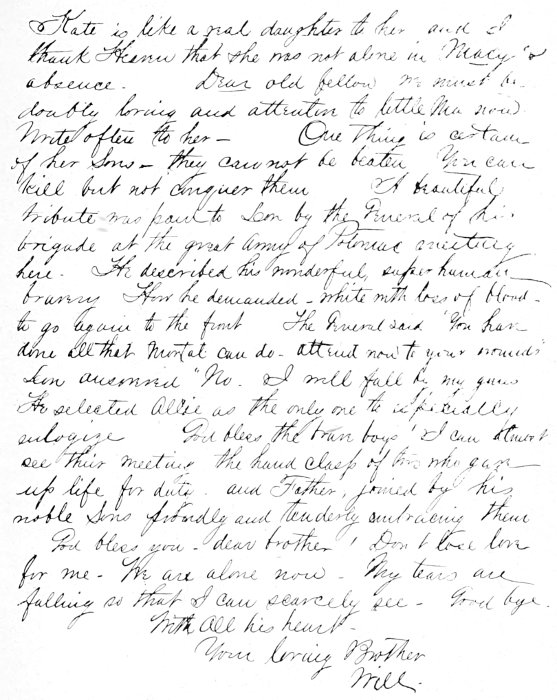 Kate is like a real daughter to her and I
thank Heaven that she was not alone in "Macy"s
absence. Dear old fellow we must be
doubly loving and attentive to little Ma now.
Write often to her — One thing is certain
of her Sons — they can not be beaten You can
kill but not conquer them A beautiful
tribute was paid to Lon by the General of his
brigade at the great Army of Potomac meeting
here. He described his wonderful, superhuman
bravery How he demanded - white with loss of blood -
to go again to the front The General said "You have
done all that Mortal can do - attend now to your wounds"
Lon answered "No. I will fall by my guns
He selected Allie as the only one to especially
eulogize God bless the brave boys! I can almost
see their meeting the hand clasp of two who gave
up life for duty. and Father, joined by his
noble Sons proudly and tenderly embracing them
God bless you - dear brother! Don't lose love
for me - We are alone now - My tears are
falling so that I can scarcely see - Good bye.
With All his heart -
Your loving Brother
Will.